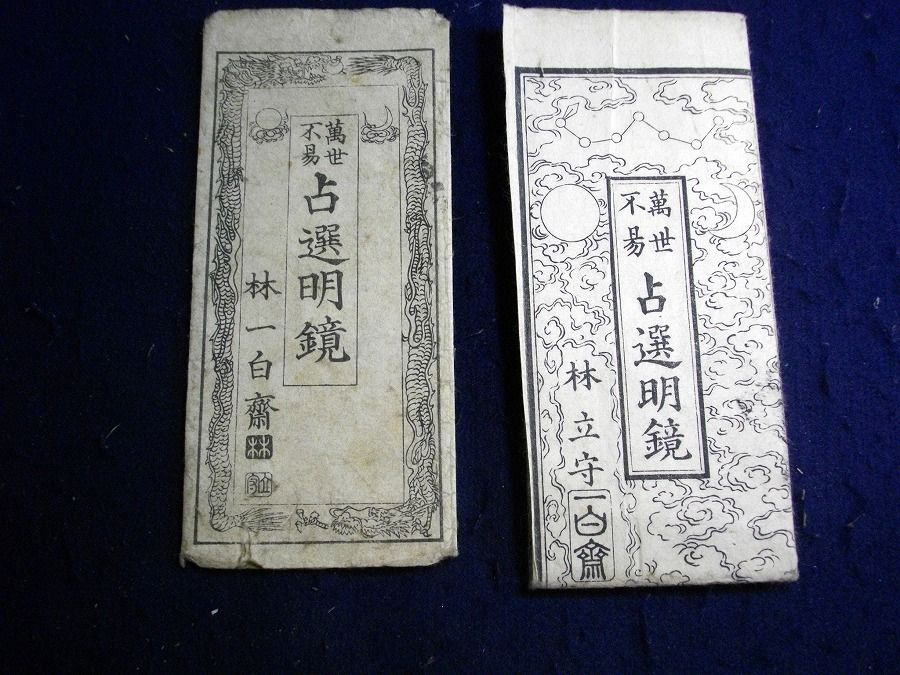 萬世
不易
占選明鏡
林一白齋
林
立守
萬世
不易
占選明鏡
林立守
一白齋